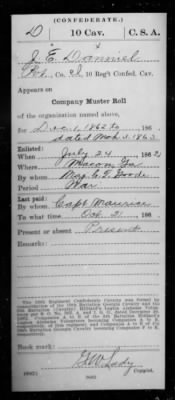 (CONFEDERATE.)
D 10 Cav. C. S. A.
J. E. Danniel
Pvt, Co. I, 10 Reg't Confed. Cav.
Appears on
Company Muster Roll
of the organization named above,
for Dec 1, 1862 to 186 .
dated Mch 3, 1863.
Enlisted:
When July 24, 1862
Where Macon Ga
By whom Maj. C. T. Goode
Period War
Last paid:
By whom Capt. Maurice
To what time Oct. 31, 186 .
Present or absent Present
Remarks:
Book mark:
(642) Copyist.